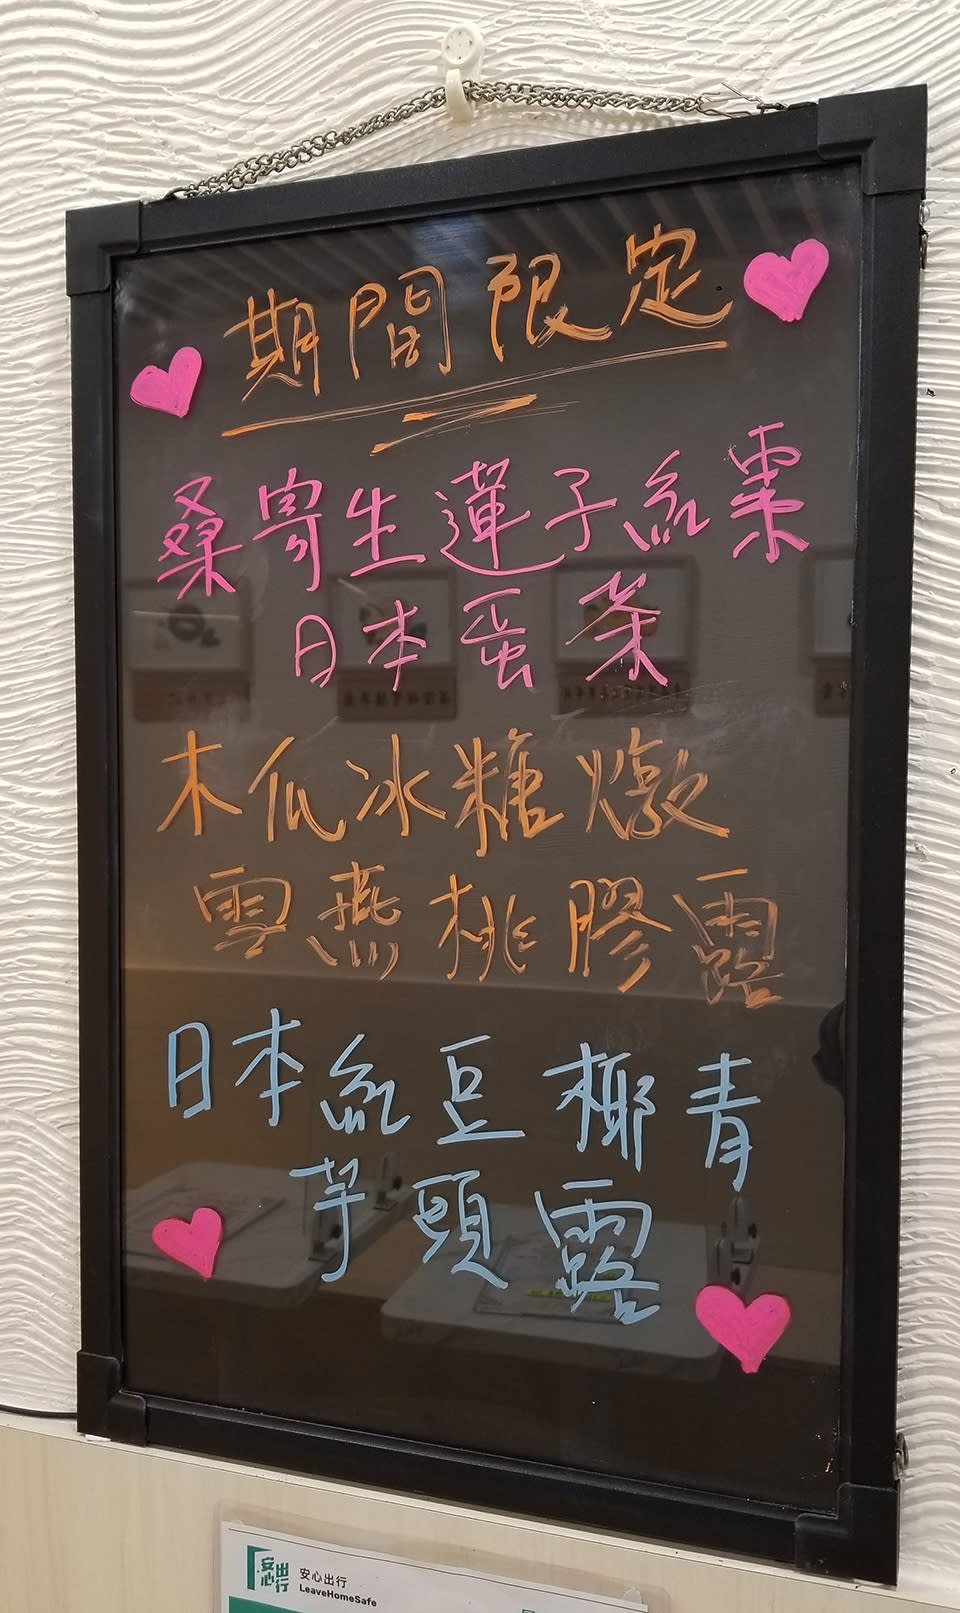 期間限定
桑寄生蓮子紅棗
日本蛋茶
木瓜冰糖燉
雪燕桃膠露
日本紅豆椰青
芋頭露
安心出行
安心出行
LeaveHomeSafe